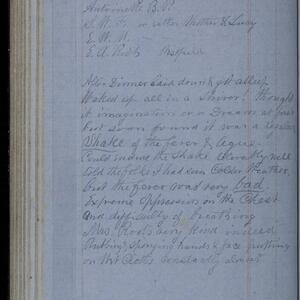 Antoinette B. P.
S. W. F. or after Mother & Lucy
E. W. N. —
E. A. Roots
After Dinner Laid down & got asleep
Waked up all in a Shiver! thought
it imagination or a Dream at first
but soon found it was a regular
Shake of the fever & Ague.
Could endure the Shake tolerably well
told the folks I had seen Colder Weather
but the fever was very bad.
Extreme Oppression on the Chest
and difficulty of breathing
Mrs Roots being kind indeed
Rubbing, sponging hands & face putting
on Hot Cloths constantly almost